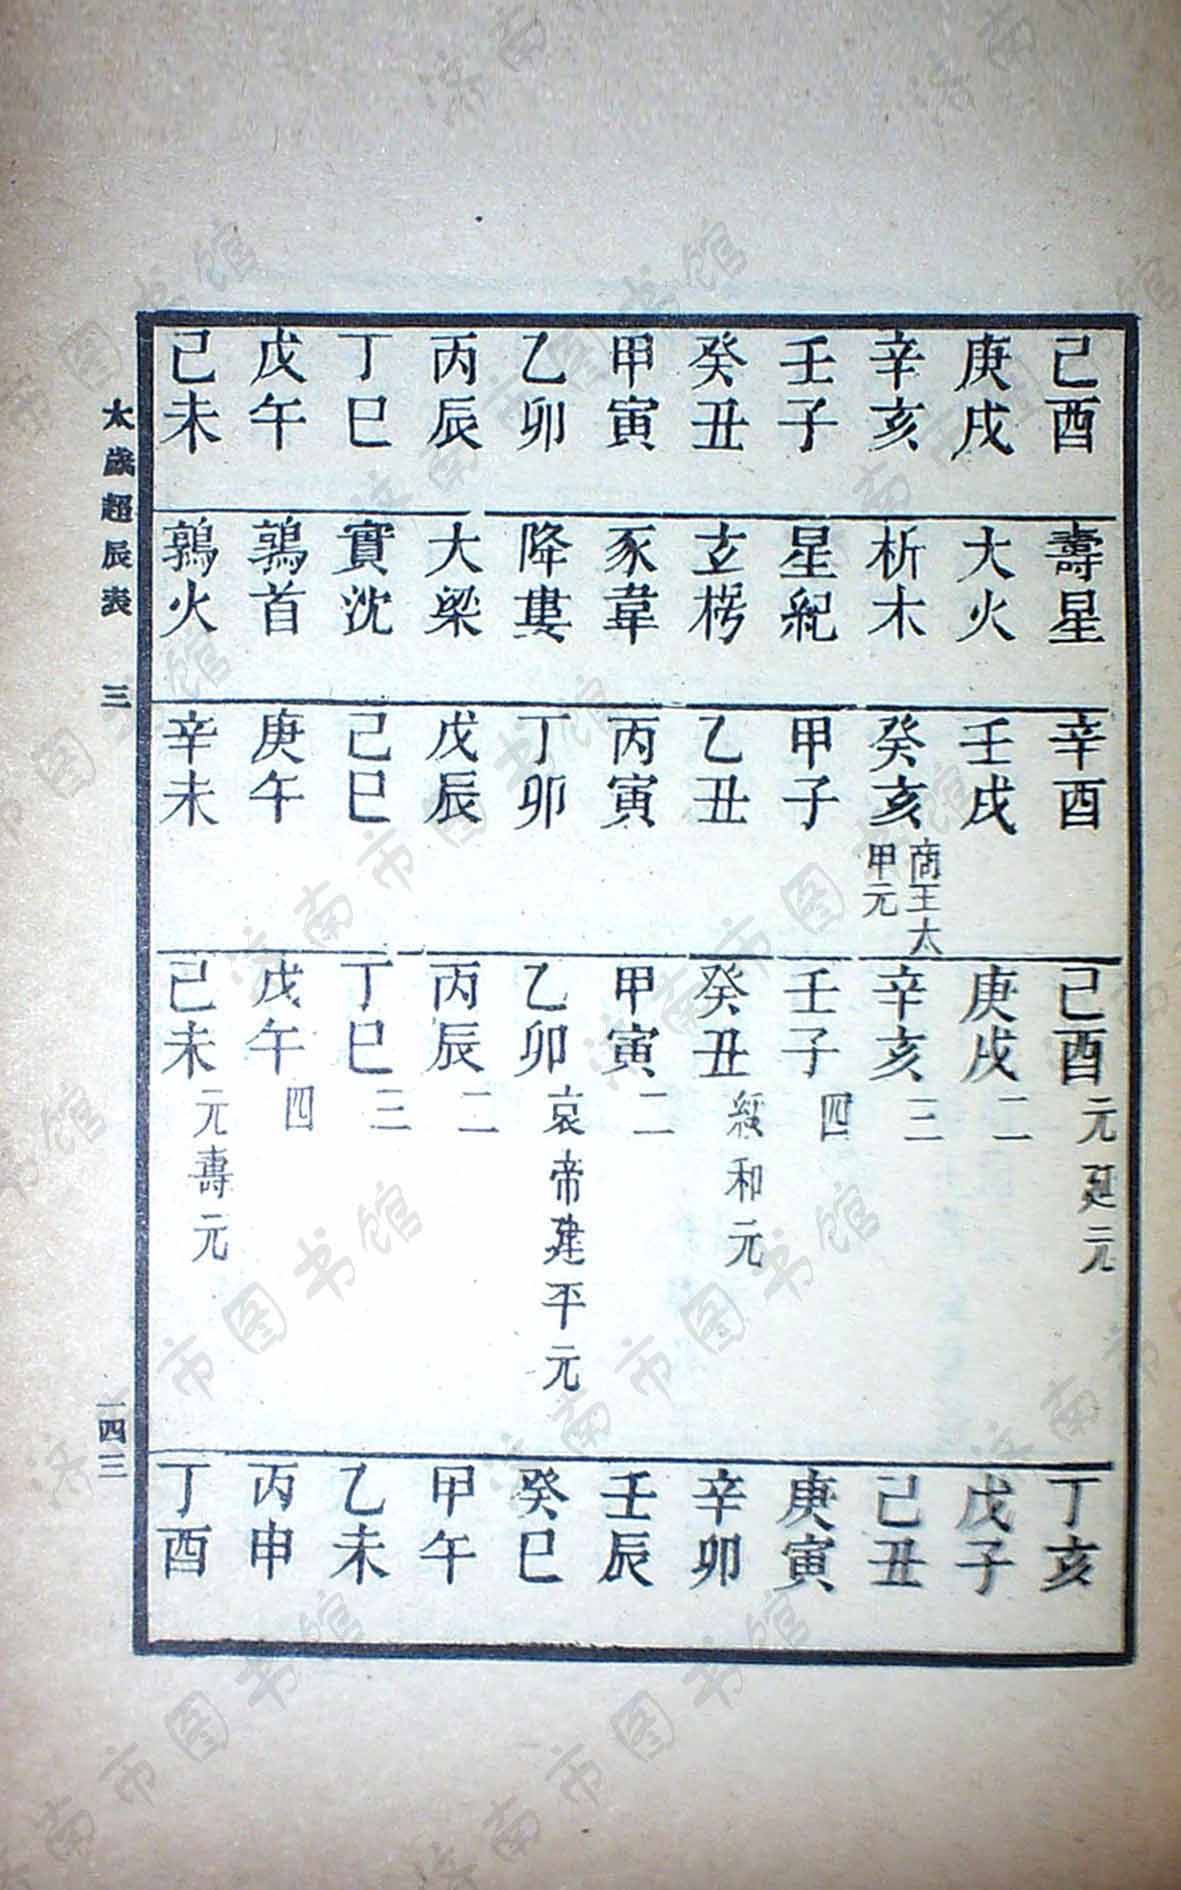 己酉 壽星 辛酉 己酉 元延元 丁亥
庚戌 大火 壬戌 庚戌 二 戊子
辛亥 析木 癸亥 商王太甲元 辛亥 三 己丑
壬子 星紀 甲子 壬子 四 庚寅
癸丑 玄枵 乙丑 癸丑 綏和元 辛卯
甲寅 豕韋 丙寅 甲寅 二 壬辰
乙卯 降婁 丁卯 乙卯 哀帝建平元 癸巳
丙辰 大梁 戊辰 丙辰 二 甲午
丁巳 實沈 己巳 丁巳 三 乙未
戊午 鶉首 庚午 戊午 四 丙申
己未 鶉火 辛未 己未 元壽元 丁酉
太歲超辰表 三 一四三
济南市图书馆